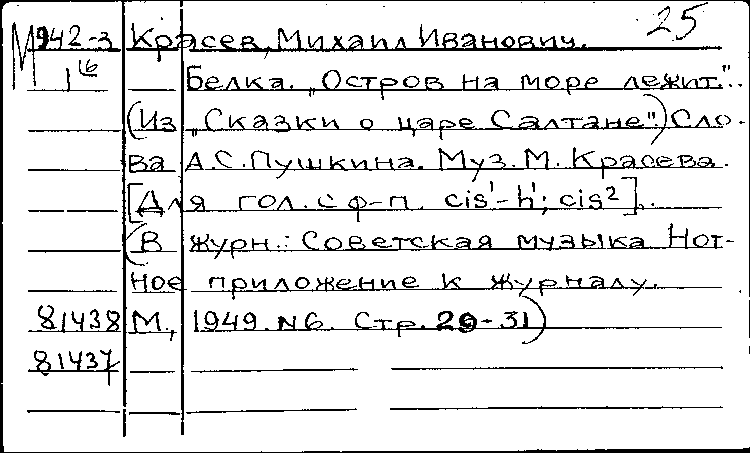 25
М942-3 Красев, Михаил Иванович.
1 16
Белка. „Остров на море лежит"..
(Из „Сказки о царе Салтане".) Сло-
ва А.С.Пушкина. Муз. М. Красева.
[Для гол. с ф-п. cis¹-h¹; cis²].
(В журн.: Советская музыка Нот-
ное приложение к журналу.
81438 М., 1949. №6. Стр. 29-31)
81437